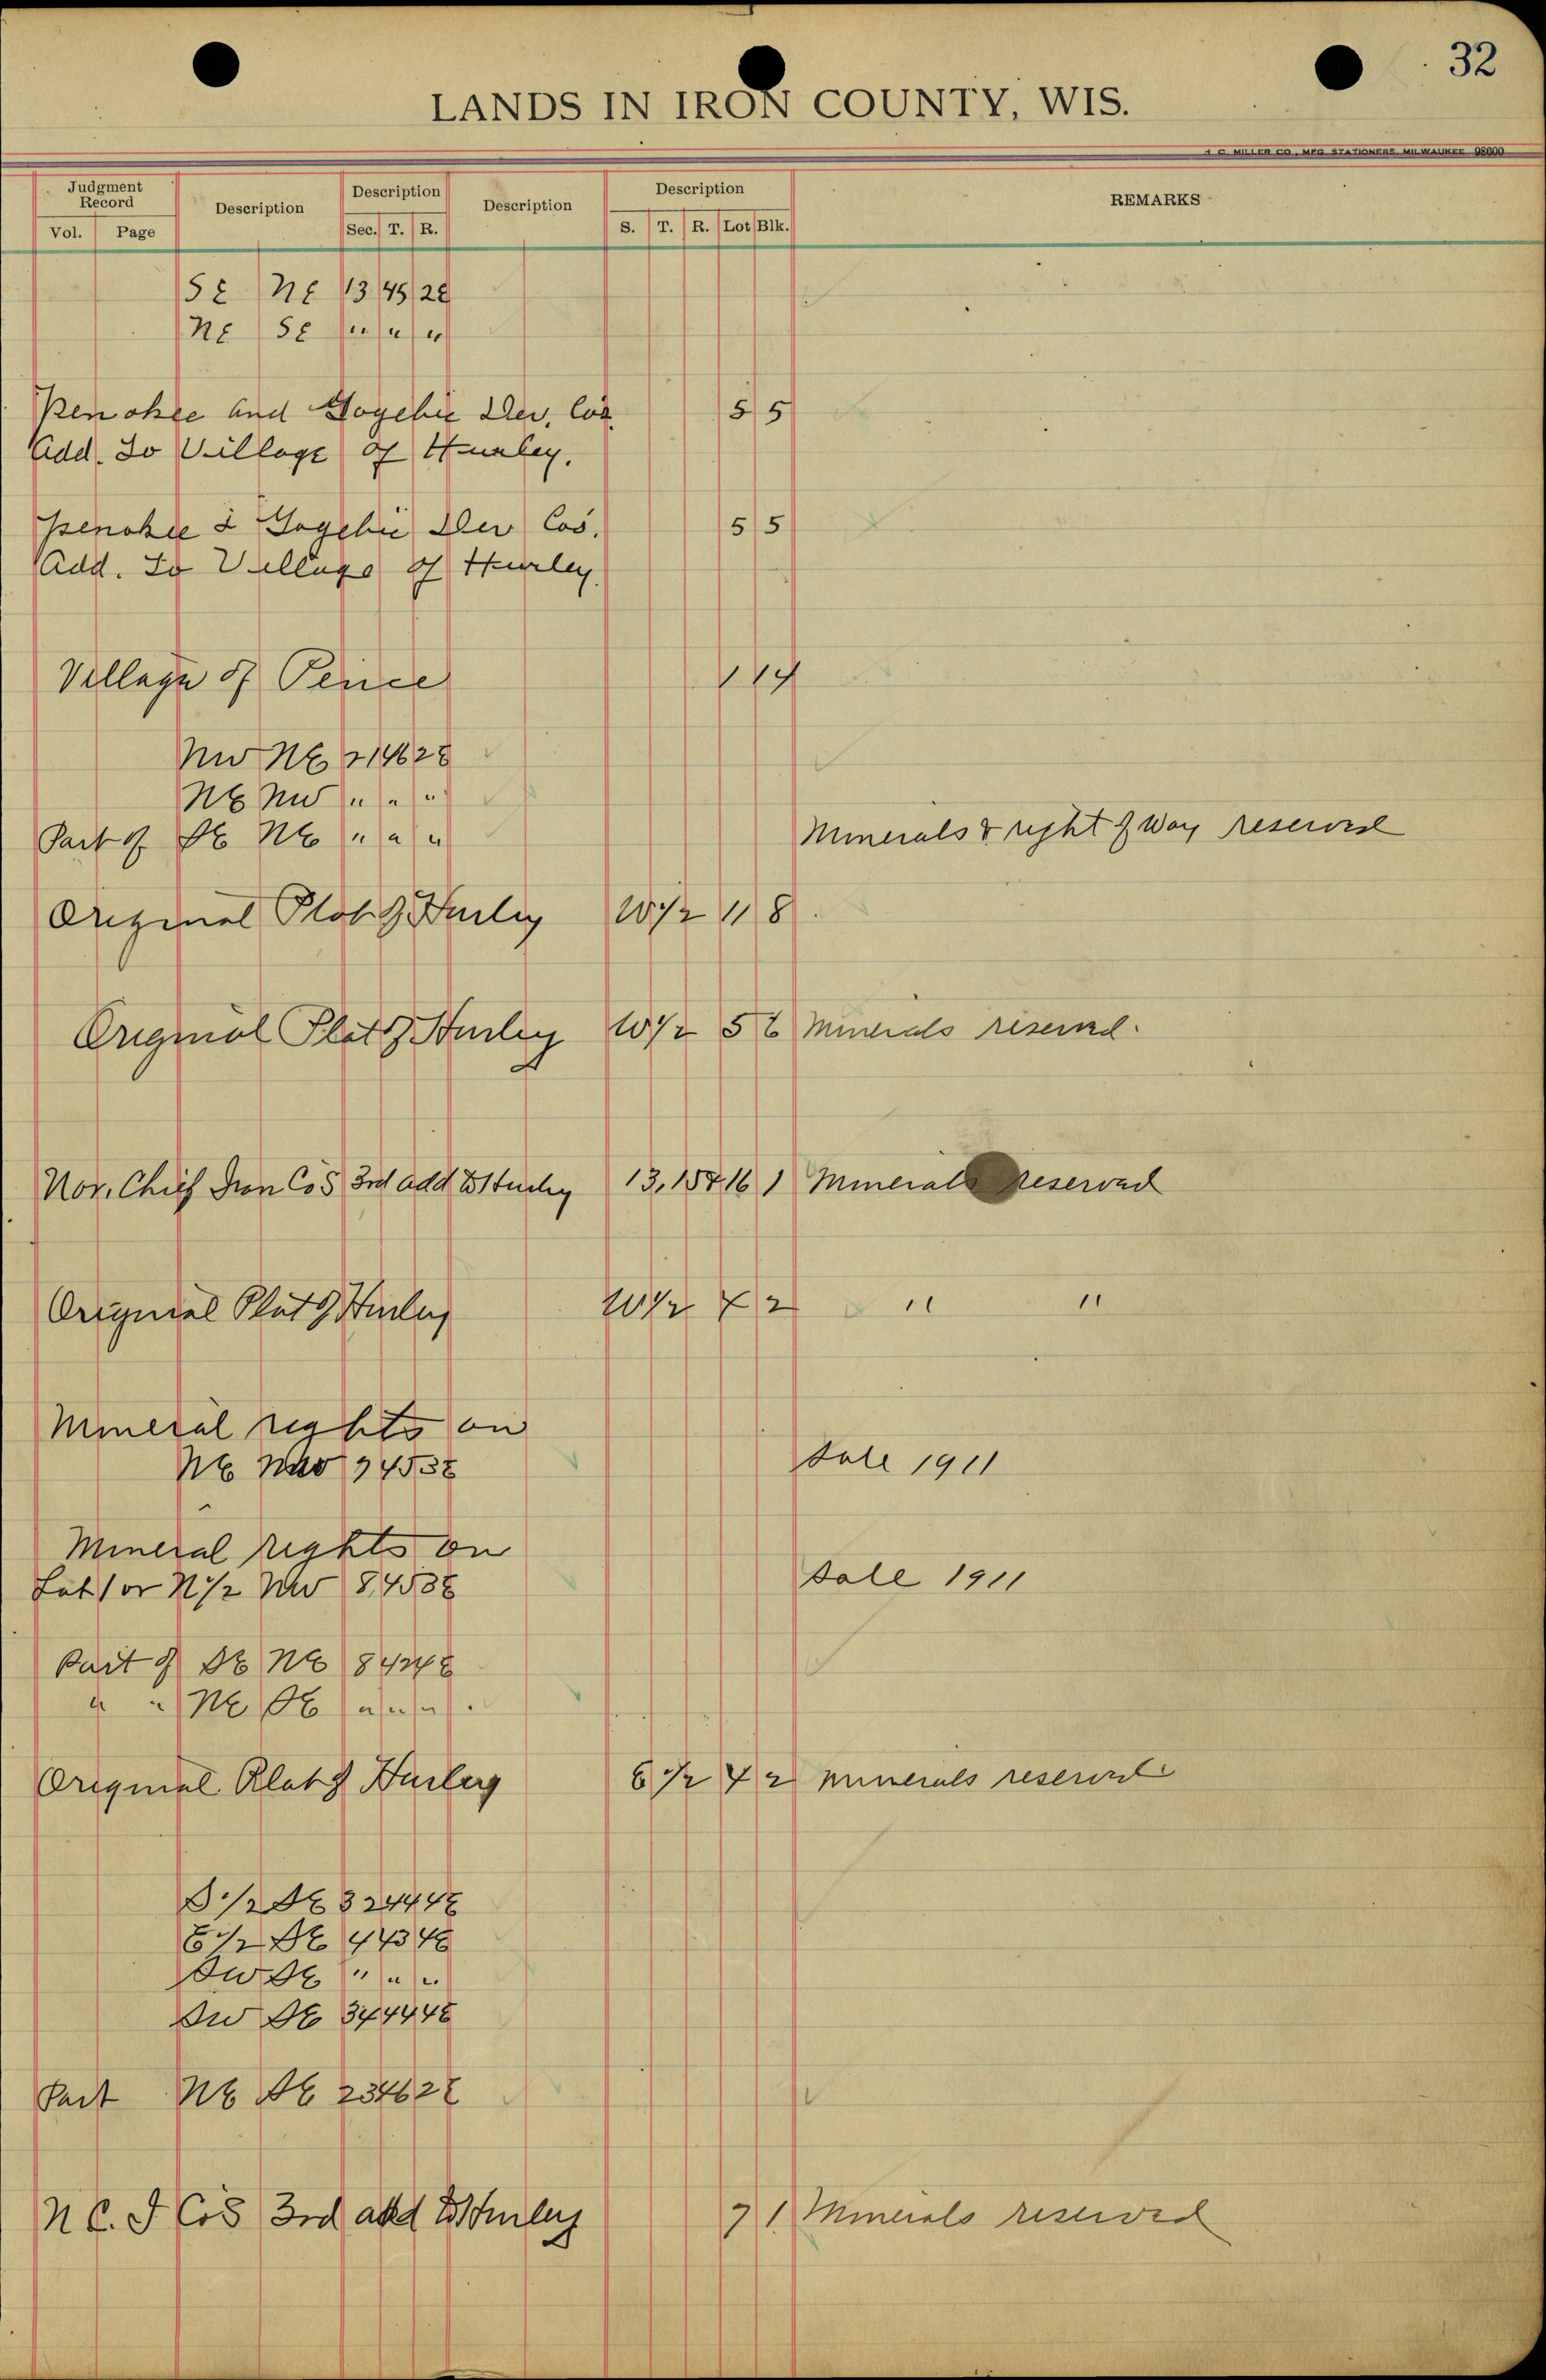 32
LANDS IN IRON COUNTY, WIS.
H. C. MILLER CO., MFG. STATIONERS, MILWAUKEE 98600
Judgment Record
Vol. Page
Description
Description
Sec. T. R.
Description
Description
S. T. R. Lot Blk.
REMARKS
SE NE 13 45 2E
NE SE " " "
Penokee and Gogebic Dev. Cos. 5 5
Add. to Village of Hurley.
Penokee & Gogebic Dev Cos. 5 5
Add. to Village of Hurley.
Village of Pence 1 14
NW NE 21 46 2E
NE NW " " "
Part of SE NE " " " Minerals & right of Way reserved
Original Plat of Hurley W 1/2 11 8
Original Plat of Hurley W 1/2 5 6 Minerals reserved.
Nor. Chief Iron Co's 3rd add to Hurley 13, 15 & 16 1 Minerals reserved
Original Plat of Hurley W 1/2 2 " "
Mineral rights on
NE NW 45 3E Sale 1911
Mineral rights on
Lot 1 or N 1/2 NW 8 45 3E Sale 1911
Part of SE NE 8 4E
" " NE SE " " "
Original Plat of Hurley E 1/2 2 minerals reserved
S 1/2 SE 32 44 4E
E 1/2 SE 4 43 4E
SW SE " " "
SW SE 34 44 4E
Part NE SE 23 46 2E
N. C. I Co's 3rd add to Hurley 7 1 Minerals reserved